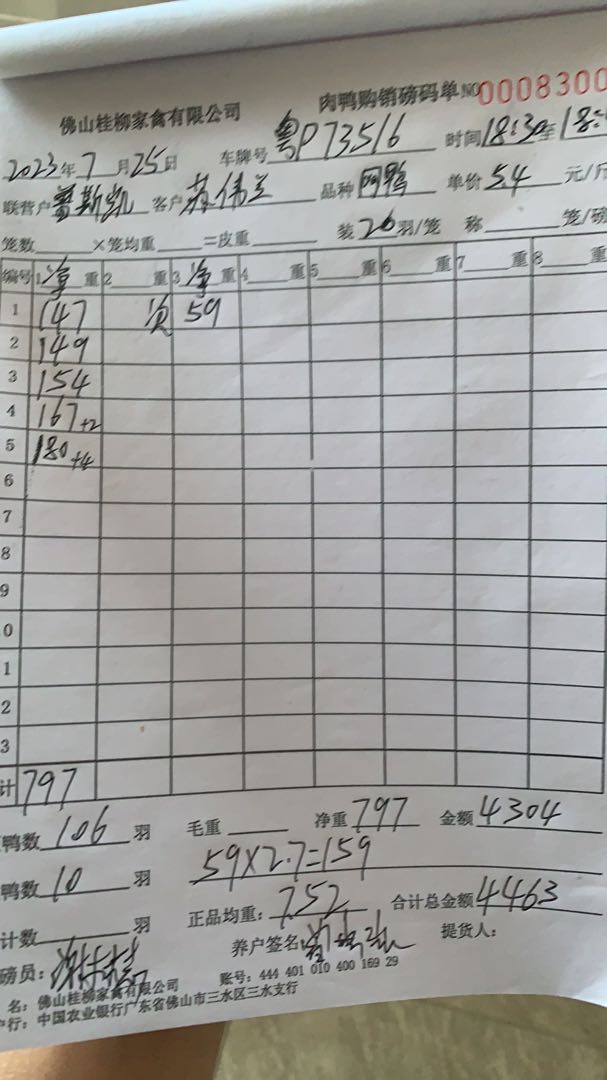 佛山桂柳家禽有限公司 肉鸭购销磅码单 NO 0008300
2023年7月25日 车牌号 粤P73516 时间18:30至18:
联营户 斯凯 客户 苏伟兰 品种 单价 5.4 元/斤
笼数 ×笼均重 =皮重 装 26 羽/笼 称 笼/磅
编号 1 净重 2 重 3 净重 4 重 5 重 6 重 7 重 8 重
1 147 次 59
2 149
3 154
4 167+2
5 180+4
6
7
8
9
0
1
2
3
计 797
鸭数 106 羽 毛重 净重 797 金额 4304
59×2.7=159
鸭数 10 羽
计数 羽 正品均重: 7.52 合计总金额 4463
磅员: 养户签名: 提货人:
名: 佛山桂柳家禽有限公司 账号: 444 401 010 400 169 29
户行: 中国农业银行广东省佛山市三水区三水支行